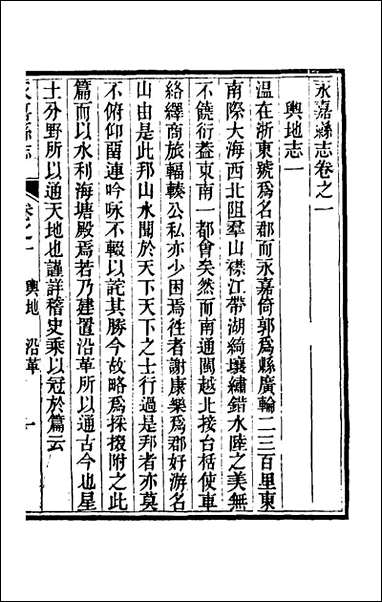 永嘉縣志卷之一
輿地志一
溫在浙東號爲名郡而永嘉倚郭爲縣廣輪二三百里東
南際大海西北阻羣山襟江帶湖綺壤繡錯水陸之美無
不饒衍蓋東南一都會矣然而南通閩越北接台栝使車
絡繹商旅輻輳公私亦少困焉徃者謝康樂爲郡好游名
山由是此邦山水聞於天下天下之士行過是邦者亦莫
不俯仰留連吟咏不輟以詫其勝今故略爲採掇附之此
篇而以水利海塘殿焉若乃建置沿革所以通古今也星
土分野所以通天地也謹詳稽史乘以冠於篇云
永嘉縣志
卷之一
輿地 沿革
一